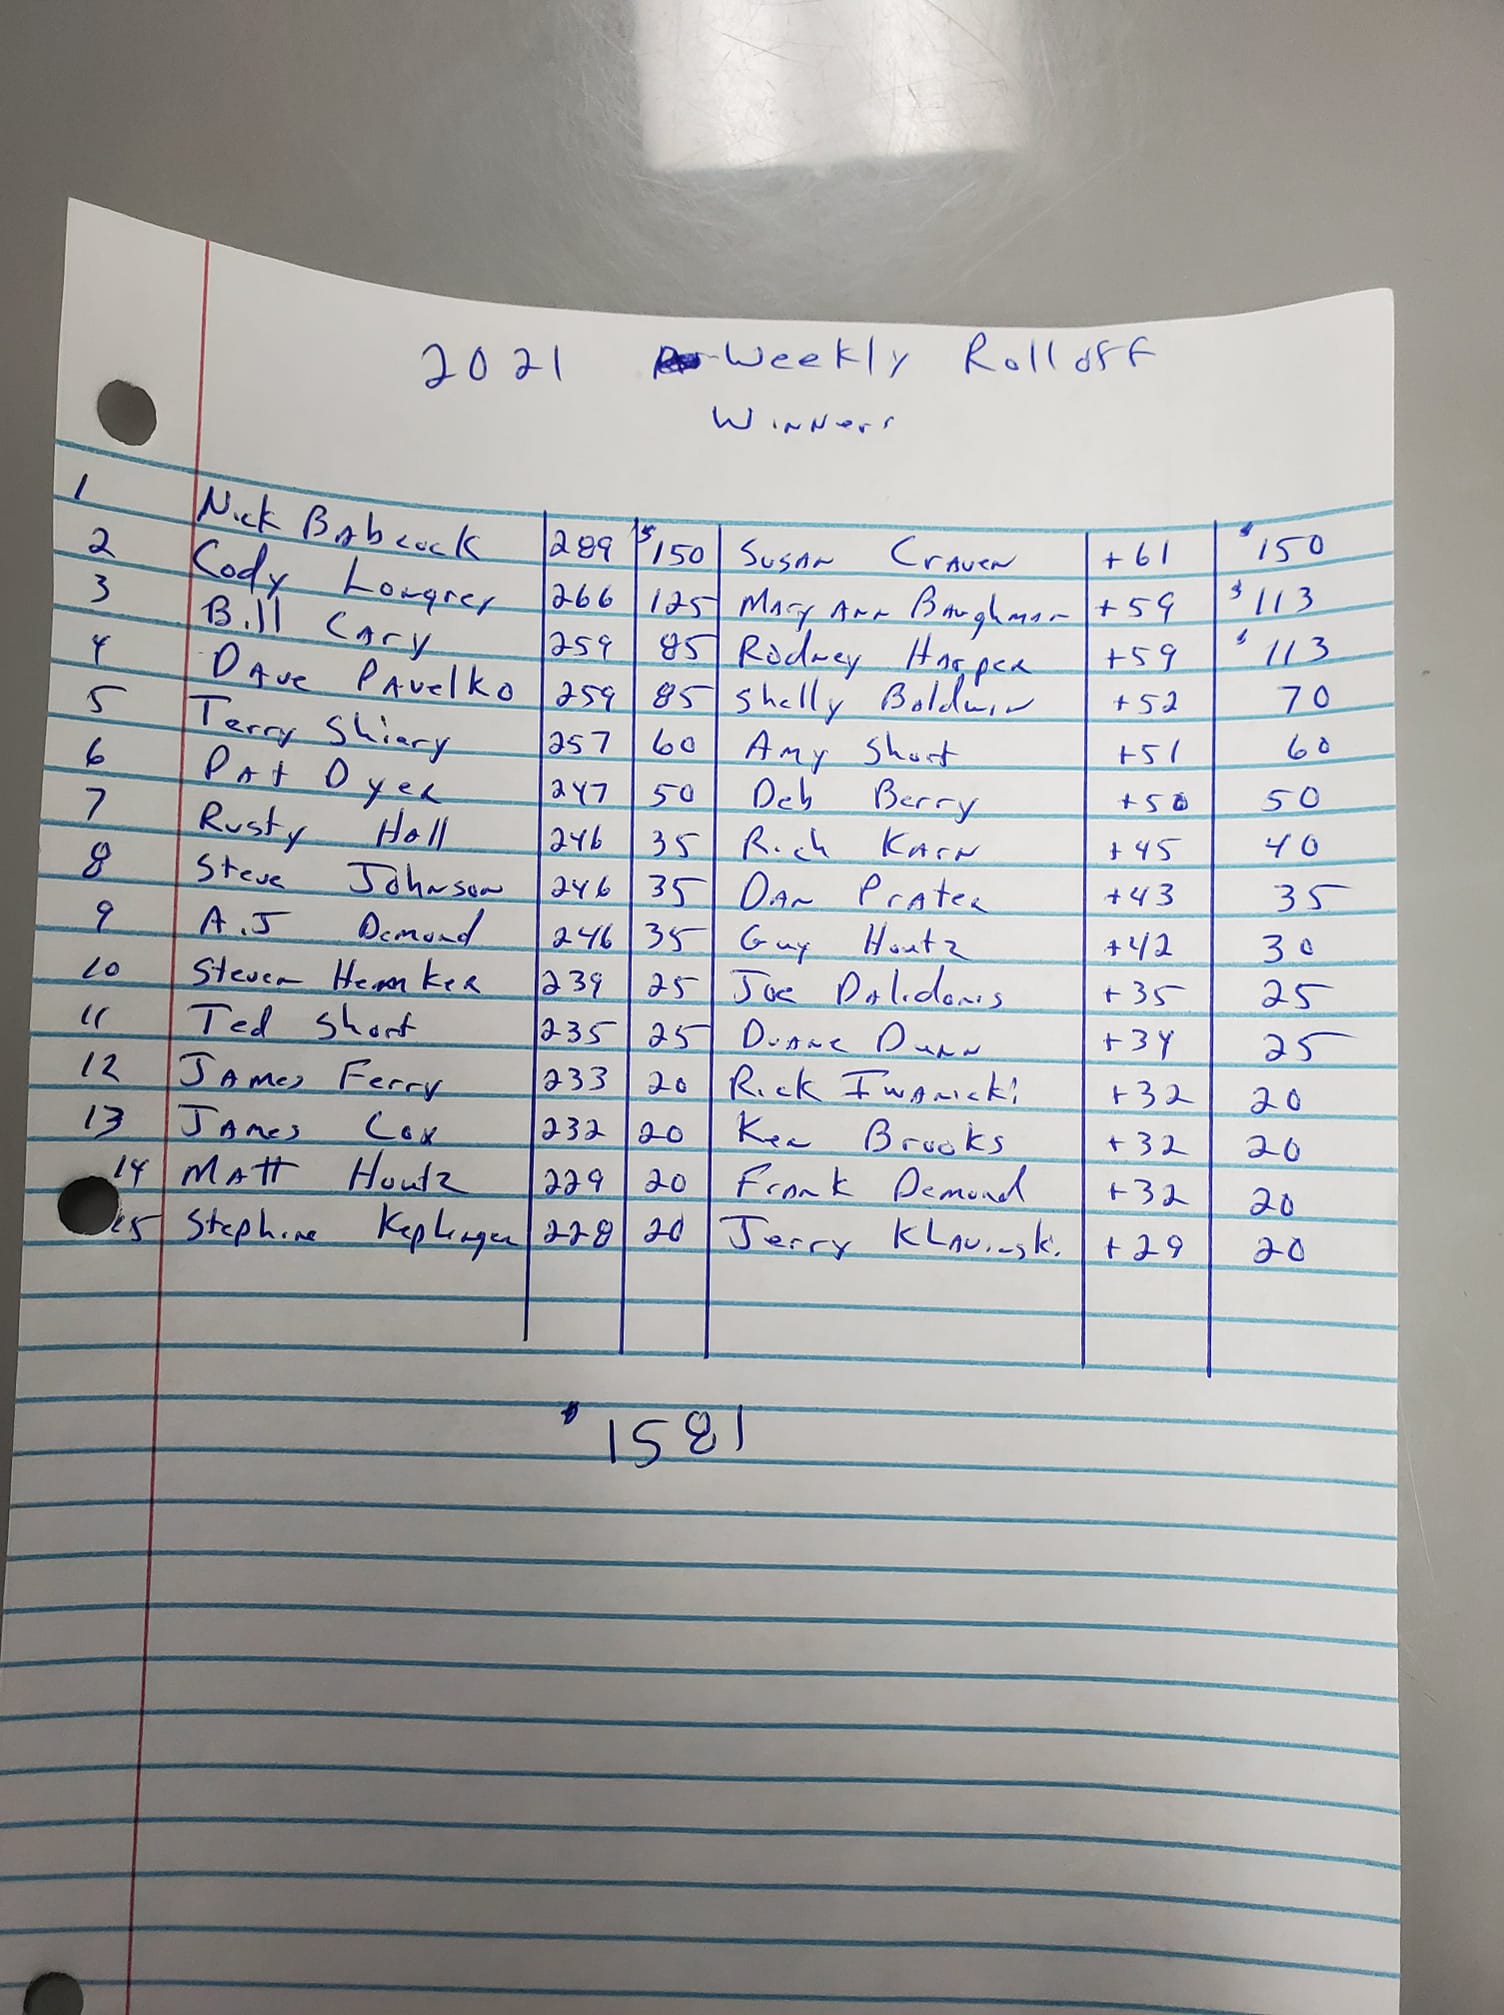 2021 Weekly Rolloff
Winners
1 Nick Babcock 289 $150 Susan Craven +61 $150
2 Cody Longney 266 125 Mary Ann Baughman +59 $113
3 Bill Cary 259 85 Rodney Harper +59 $113
4 Dave Pavelko 259 85 Shelly Baldwin +52 70
5 Terry Shiary 257 60 Amy Short +51 60
6 Pat Dyer 247 50 Deb Berry +50 50
7 Rusty Hall 246 35 Rich Karn +45 40
8 Steve Johnson 246 35 Dan Prater +43 35
9 A.J Demond 246 35 Guy Houtz +42 30
10 Steven Hemmker 239 25 Joe Dalidonis +35 25
11 Ted Short 235 25 Duane Dunn +34 25
12 James Ferry 233 20 Rick Iwanicki +32 20
13 James Cox 232 20 Ken Brooks +32 20
14 Matt Houtz 229 20 Frank Demond +32 20
15 Stephine Keplinger 228 20 Jerry Klavinski +29 20
$1581